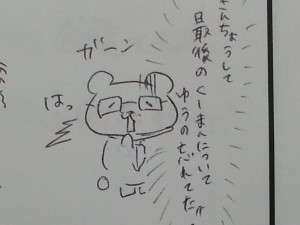 きんちょうして
最後のくーまんについて
ゆうの忘れてた!!
ガーン
はっ